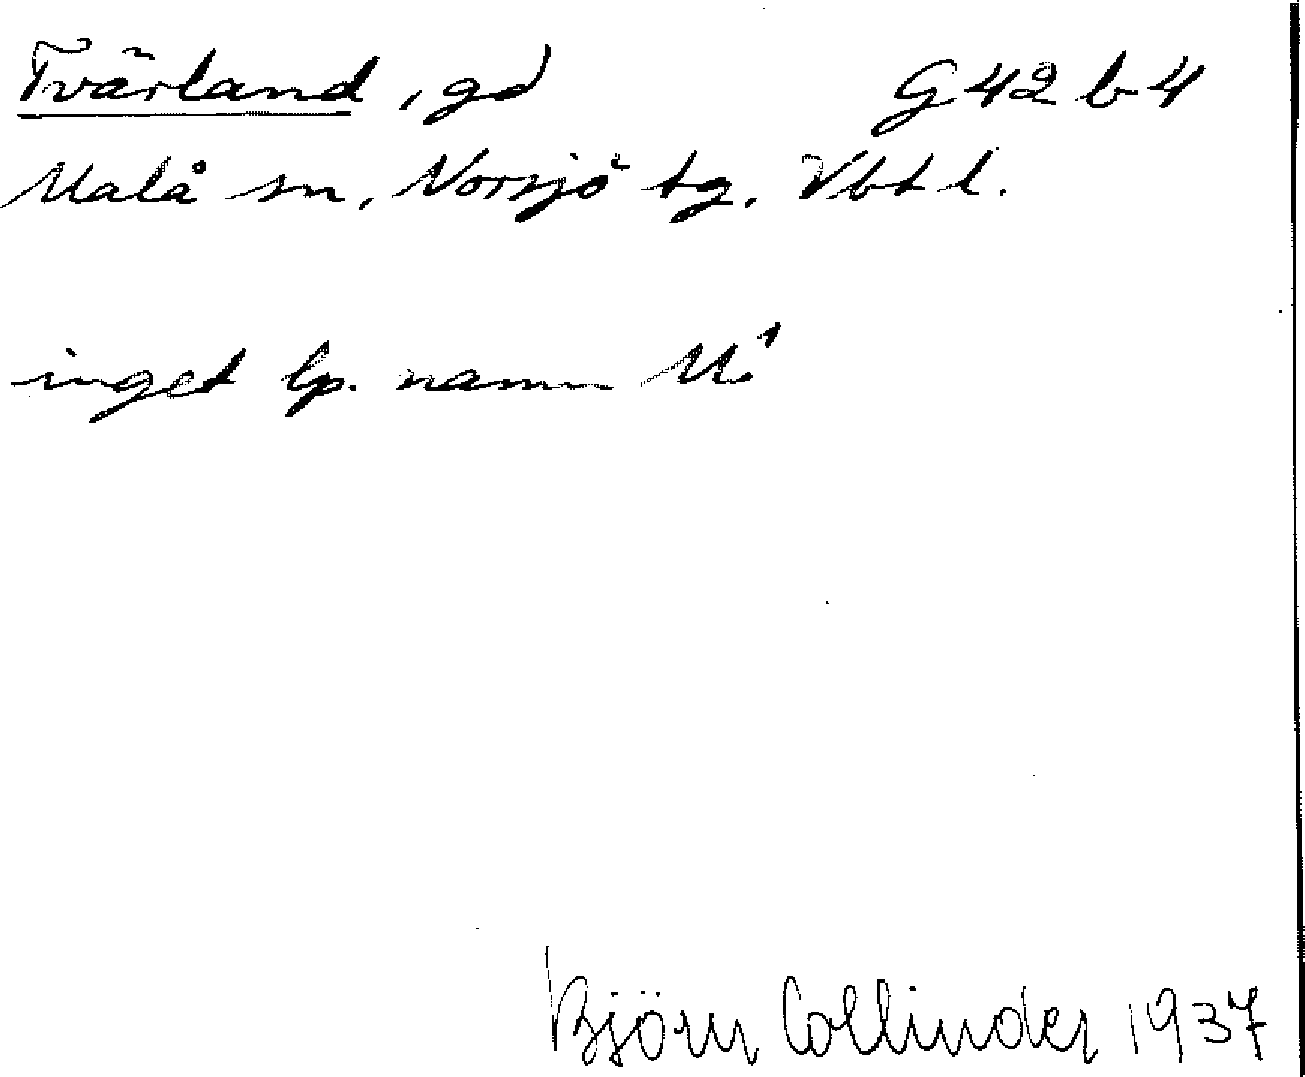 Tvärland, gd G42 b4
Malå sn, Norsjö tg. Vbt l.
inget lp. namn M.¹
Björn Collinder 1937